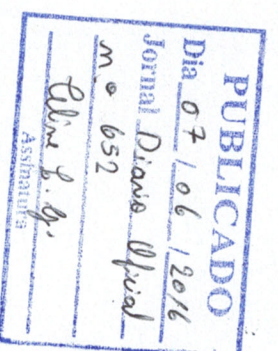 PUBLICADO
Dia 07 / 06 / 2016
Jornal Diário Oficial
n.o 652
Assinatura